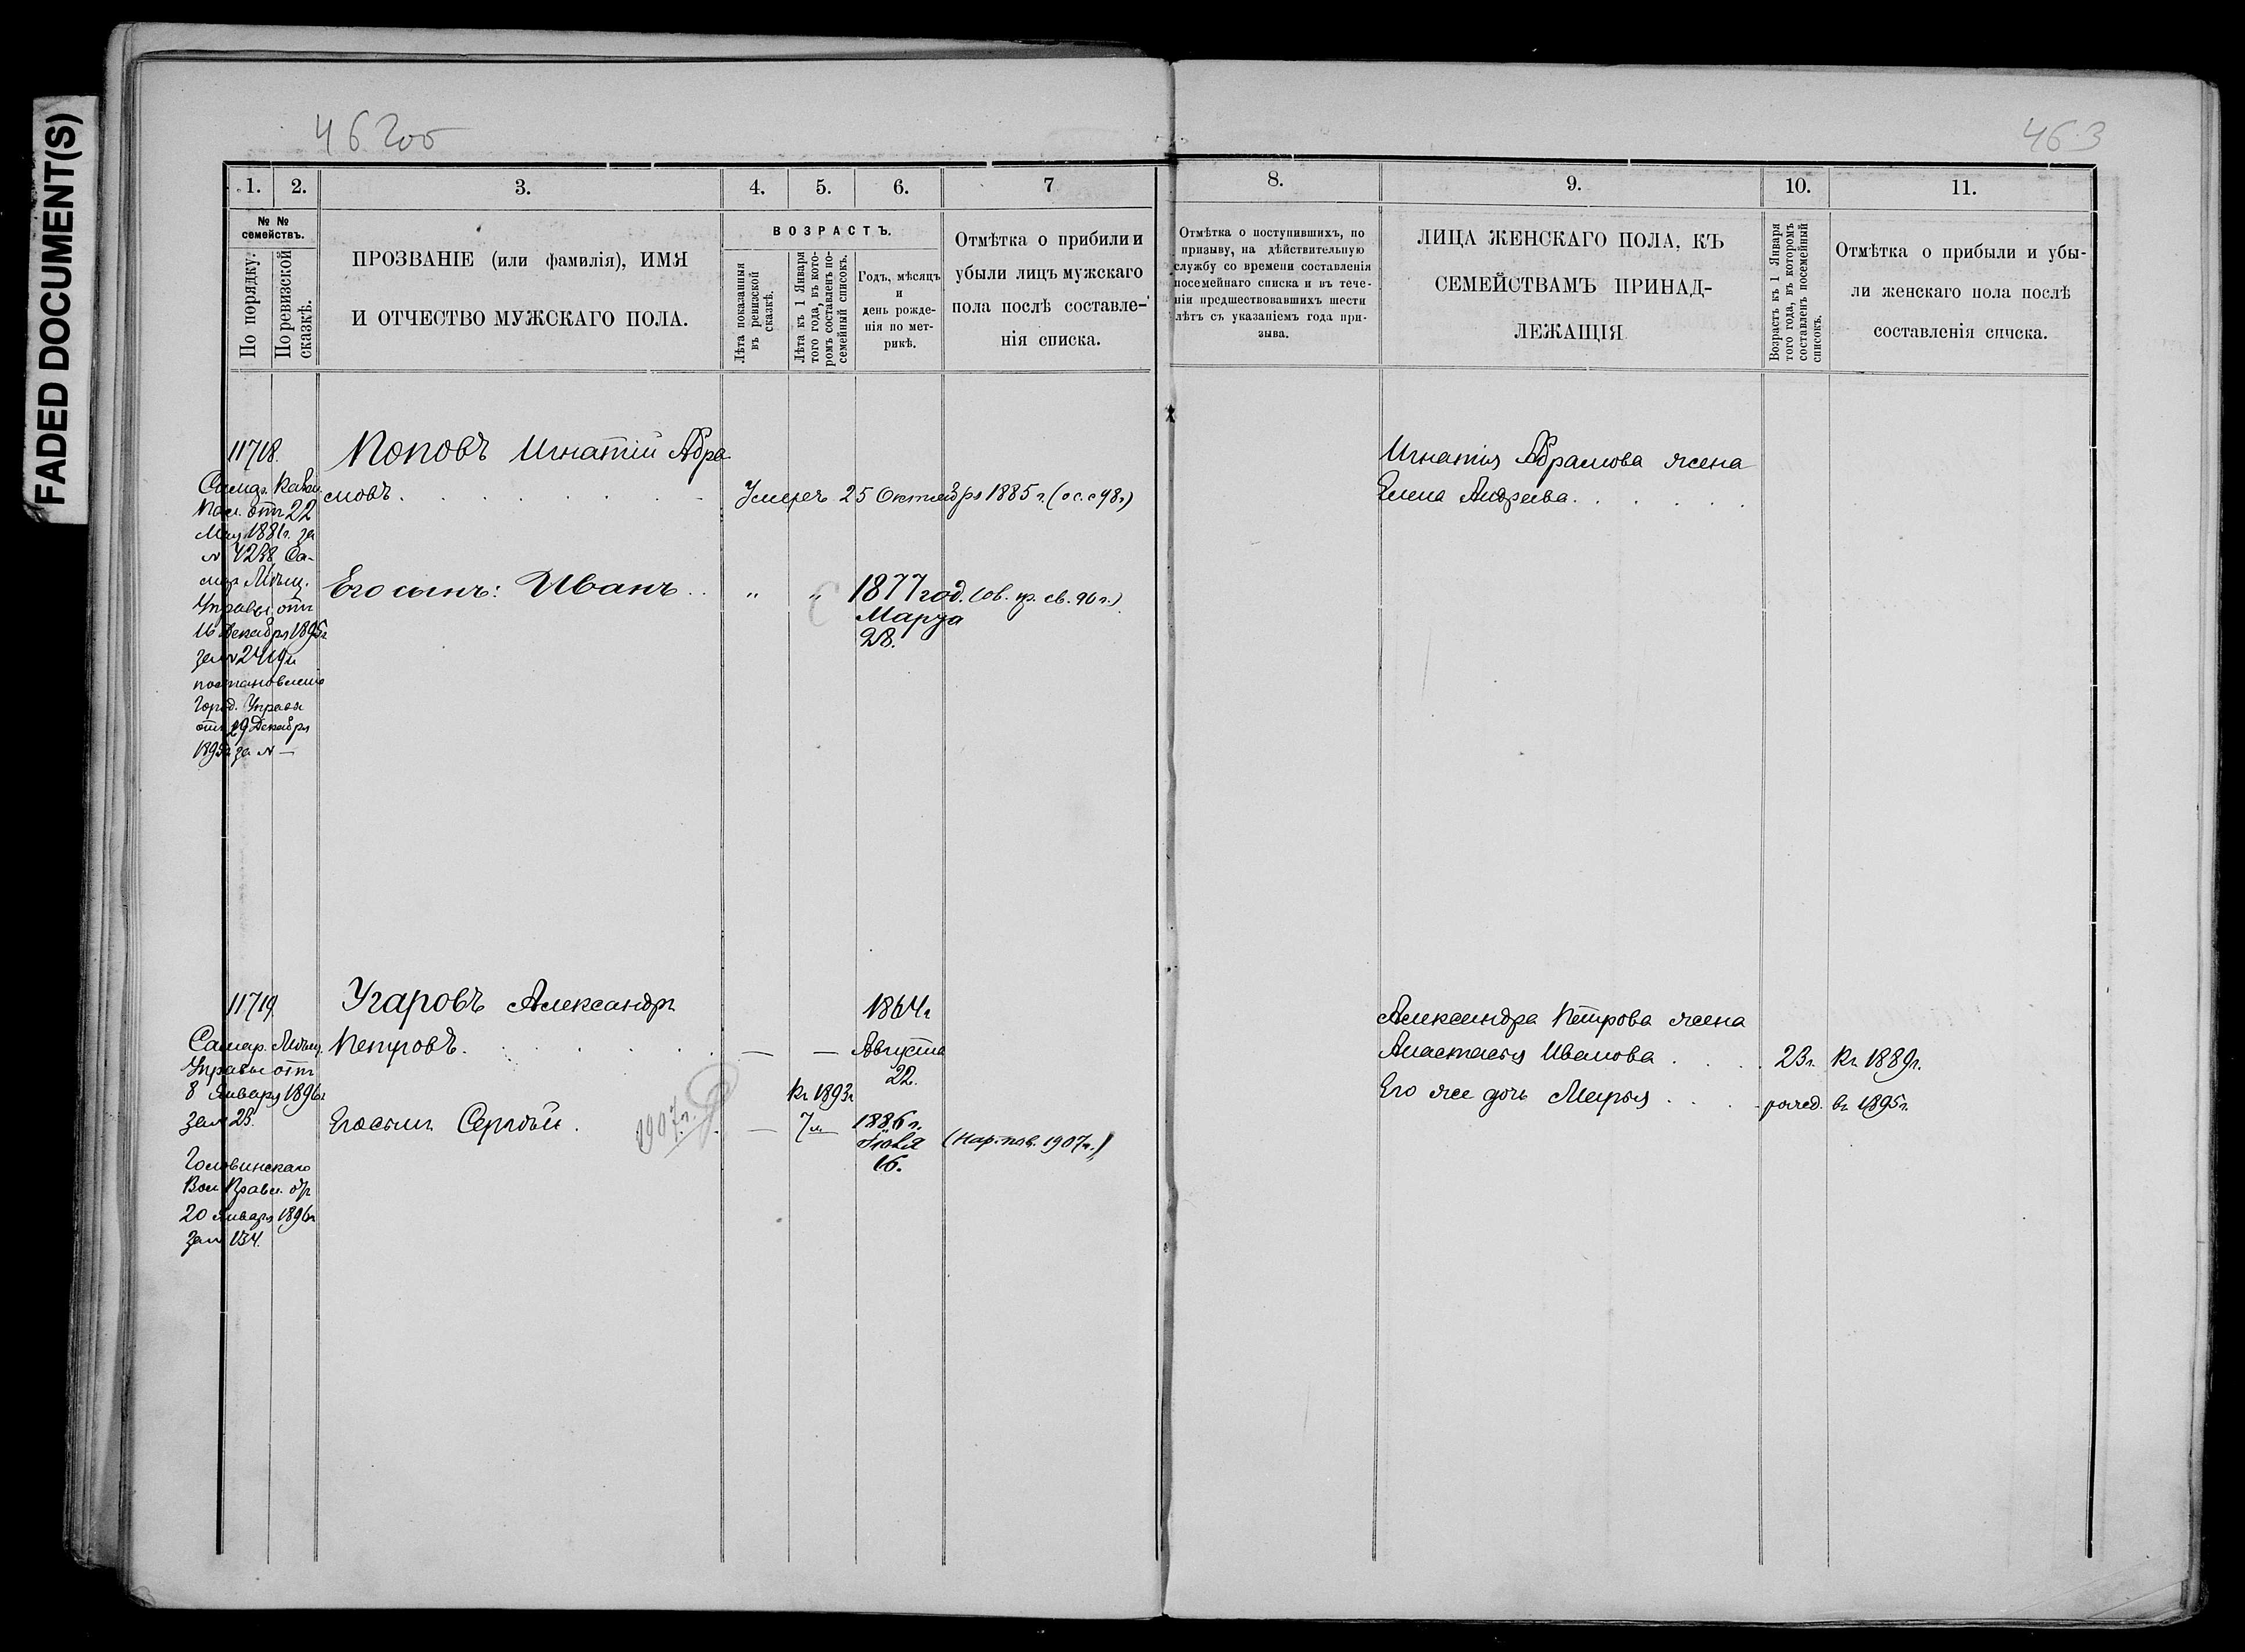 FADED DOCUMENT(S)
462об
463
1.
2.
3.
4.
5.
6.
7
8.
9.
10.
11.
№ №
семействъ.
По порядку.
По ревизской
сказкѣ.
ПРОЗВАНІЕ (или фамилія), ИМЯ
И ОТЧЕСТВО МУЖСКАГО ПОЛА.
ВОЗРАСТЪ.
Лѣта показанныя
въ ревизской
сказкѣ.
Лѣта къ 1 Января
того года, въ кото-
ромъ составленъ по-
семейный списокъ.
Годъ, мѣсяцъ
и
день рожде-
нія по мет-
рикѣ.
Отмѣтка о прибыли и
убыли лицъ мужскаго
пола послѣ составле-
нія списка.
Отмѣтка о поступившихъ, по
призыву, на дѣйствительную
службу со времени составленія
посемейнаго списка и въ тече-
ніи предшествовавшихъ шести
лѣтъ съ указаніемъ года при-
зыва.
ЛИЦА ЖЕНСКАГО ПОЛА, КЪ
СЕМЕЙСТВАМЪ ПРИНАД-
ЛЕЖАЩІЯ
Возрастъ къ 1 Января
того года, въ которомъ
составленъ посемейный
списокъ.
Отмѣтка о прибыли и убы-
ли женскаго пола послѣ
составленія списка.
11718.
Самар. Казен.
Пал. отъ 22
Мая 1881г. за
№ 4238, Са-
мар. Мѣщ.
Управы отъ
16 Декабря 1895г
за № 2419 и
постановленіе
Город. Управы
отъ 29 Декабря
1895г за № —
Поповъ Игнатій Абра-
мовъ
Умеръ 25 Октября 1885 г.
Его сынъ: Иванъ
" " 1877 год.
Марта
28.
Игнатія Абрамова жена
Елена Андреева
11719.
Самар. Мѣщ.
Управы отъ
8 Января 1896г
за № 25.
Головинскаго
Вол. Правл. отъ
20 Января 1896г
за № 134.
Угаровъ Александръ
Петровъ.
— — 1864г
Августа
22.
Его сынъ Сергѣй.
1907 г.
Къ 1893г
— 7 л. 1886 г.
Іюля
16.
Александра Петрова жена
Анастасія Иванова
23г. Къ 1889г.
Его же дочь Марія
рожд. въ 1895г.